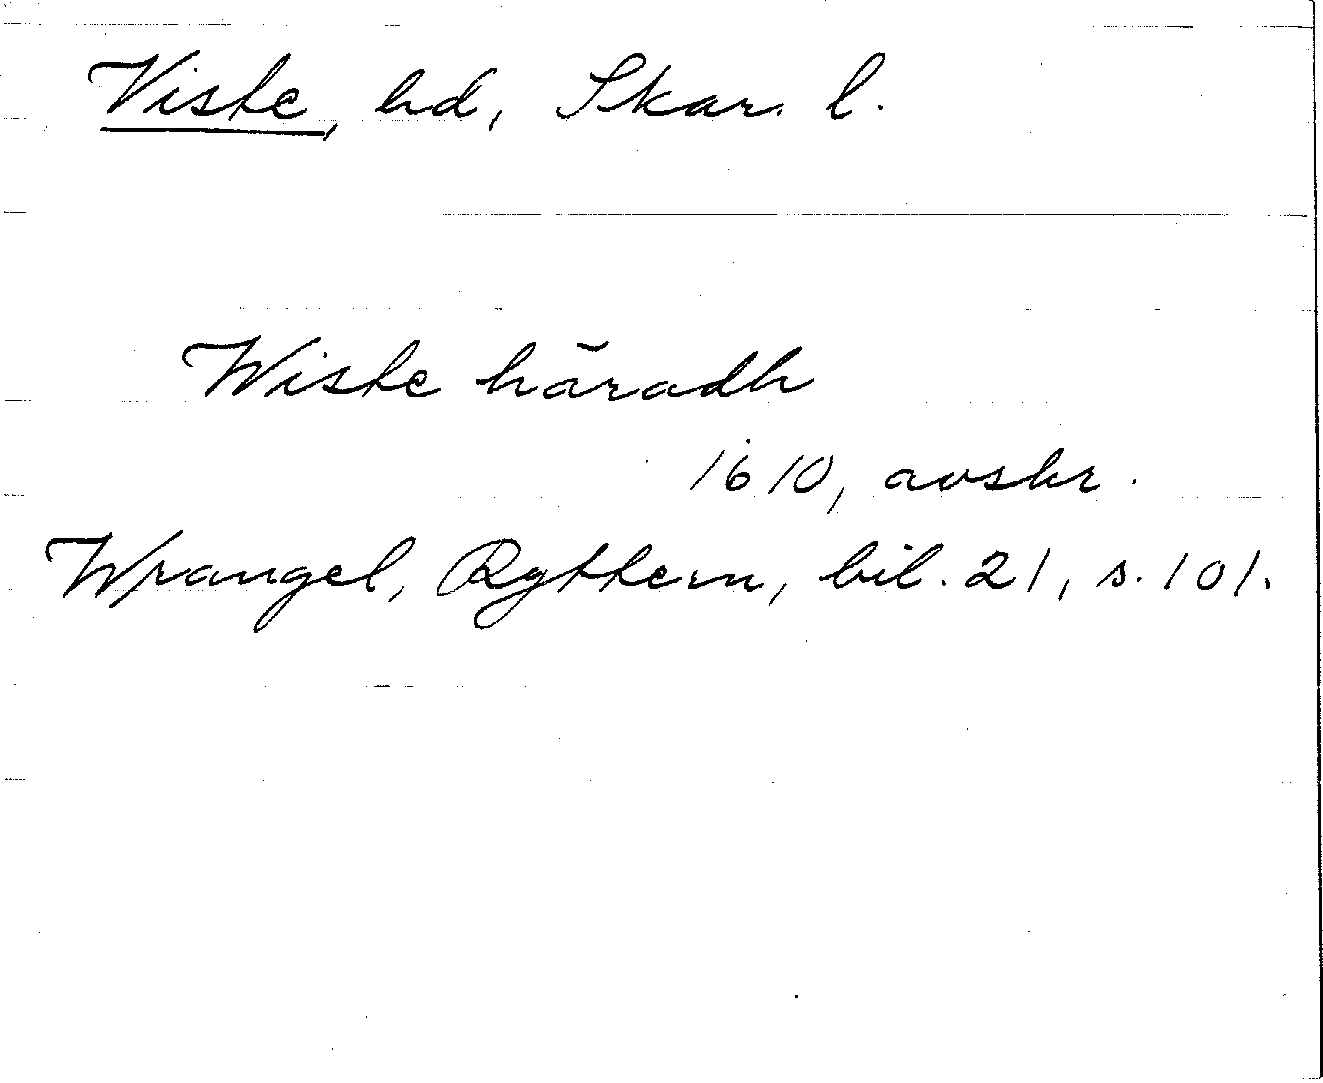 Viste, hd, Skar. l.
Wiste häradh
1610, avskr.
Wrangel, Ryttern, bil. 21, s. 101.